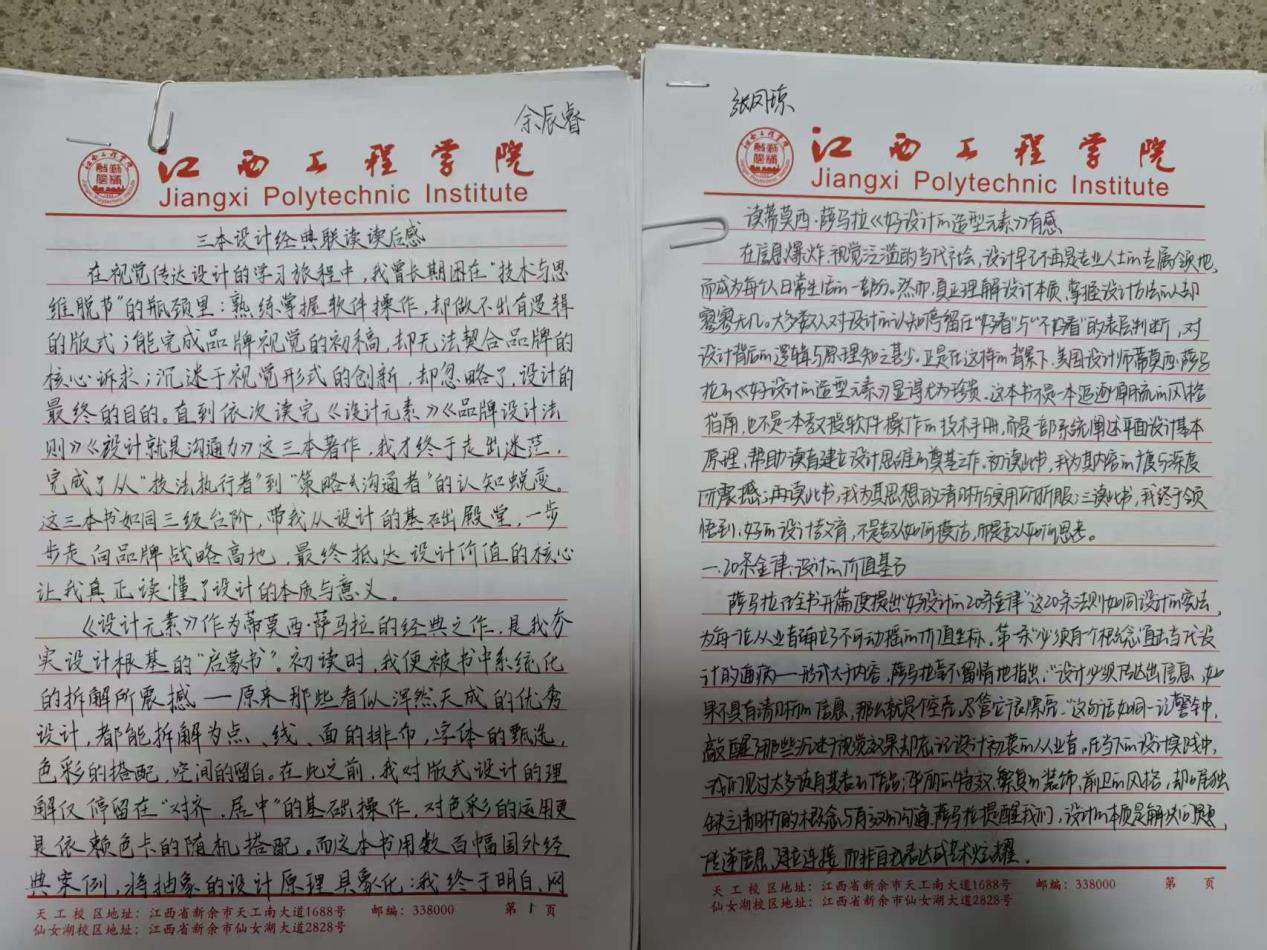 余辰睿
江西工程学院
Jiangxi Polytechnic Institute
三本设计经典联读读后感
在视觉传达设计的学习旅程中，我曾长期困在"技术与思
维脱节"的瓶颈里：熟练掌握软件操作，却做不出有逻辑
的版式；能完成品牌视觉的初稿，却无法契合品牌的
核心诉求；沉迷于视觉形式的创新，却忽略了，设计的
最终的目的。直到依次读完《设计元素》《品牌设计法
则》《设计就是沟通力》这三本著作，我才终于走出迷茫，
完成了从"技法执行者"到"策略沟通者"的认知蜕变。
这三本书如同三级台阶，带我从设计的基础殿堂，一步
步走向品牌战略高地，最终抵达设计价值的核心
让我真正读懂了设计的本质与意义。
《设计元素》作为蒂莫西·萨马拉的经典之作，是我夯
实设计根基的"启蒙书"。初读时，我便被书中系统化
的拆解所震撼——原来那些看似浑然天成的优秀
设计，都能拆解为点、线、面的排布，字体的甄选，
色彩的搭配，空间的留白。在此之前，我对版式设计的理
解仅停留在"对齐，居中"的基础操作，对色彩的运用更
是依赖色卡的随机搭配。而这本书用数百幅国外经
典案例，将抽象的设计原理具象化：我终于明白，网
天工校区地址：江西省新余市天工南大道1688号 邮编：338000 第1页
仙女湖校区地址：江西省新余市仙女湖大道2828号
张凤琼
江西工程学院
Jiangxi Polytechnic Institute
读蒂莫西·萨马拉《好设计的造型元素》有感
在信息爆炸、视觉泛滥的当代社会，设计早已不再是专业人士的专属领地，
而成为每个人日常生活的一部分。然而，真正理解设计本质、掌握设计方法的人却
寥寥无几。大多数人对设计的认知停留在"好看"与"不好看"的表层判断，对
设计背后的逻辑与原理知之甚少。正是在这样的背景下，美国设计师蒂莫西·萨马
拉的《好设计的造型元素》显得尤为珍贵。这本书不是一本追逐潮流的风格
指南，也不是一本教授软件操作的技术手册，而是一部系统阐述平面设计基本
原理、帮助读者建立设计思维的奠基之作。初读此书，我为其内容的广度与深度
所震撼；再读此书，我为其思想的清晰与实用所折服；三读此书，我终于领
悟到，好的设计教育，不是教人如何模仿，而是教人如何思考。
一、20条金律：设计的价值基石
萨马拉在全书开篇便提出"好设计的20条金律"这20条法则如同设计的宪法，
为每一位从业者确立了不可动摇的价值坐标。第一条"必须有个概念"直击当代设
计的通病——形式大于内容。萨马拉毫不留情地指出："设计必须传达出信息，如
果不具有清晰的信息，那么就是个空壳，尽管它很漂亮。"这句话如同一记警钟，
敲醒了那些沉迷于视觉效果却忘记设计初衷的从业者。在当下的设计实践中，
我们见过太多徒有其表的作品：华丽的特效、繁复的装饰、前卫的风格，却唯独
缺乏清晰的概念与有效的沟通。萨马拉提醒我们，设计的本质是解决问题，
传递信息、建立连接，而非自我表达或艺术炫耀。
天工校区地址：江西省新余市天工南大道1688号 邮编：338000 第 页
仙女湖校区地址：江西省新余市仙女湖大道2828号